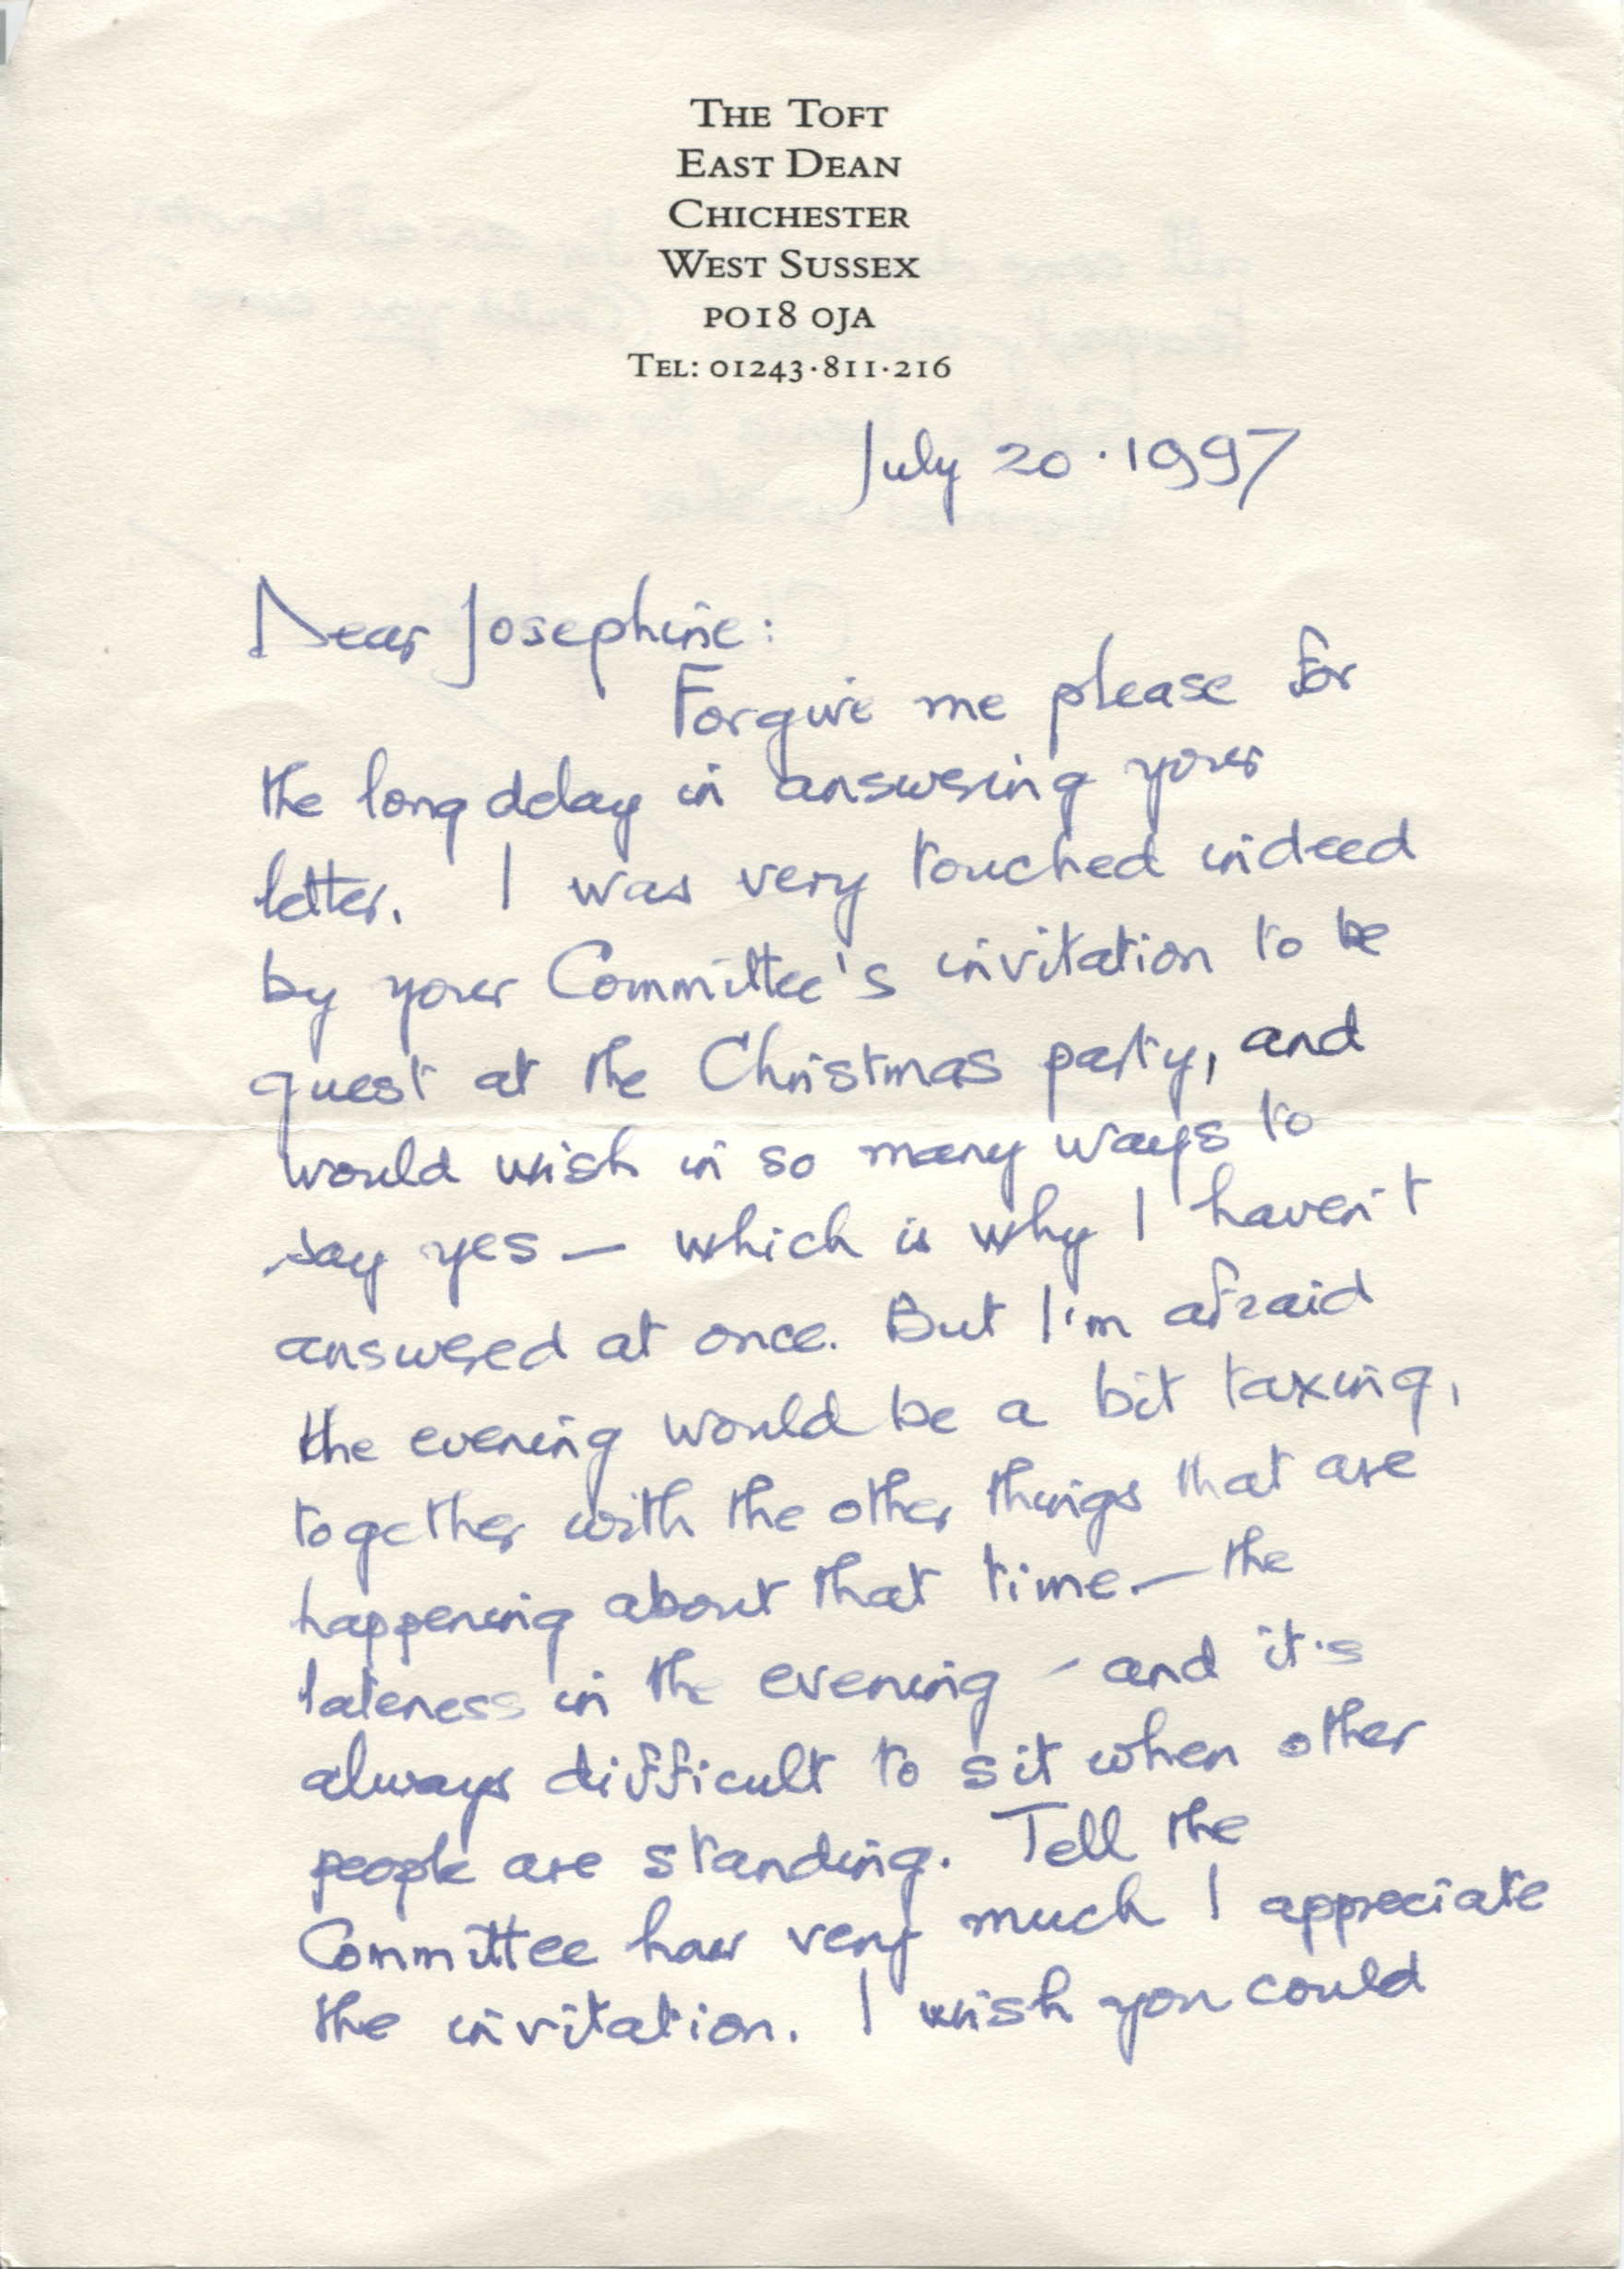 THE TOFT
EAST DEAN
CHICHESTER
WEST SUSSEX
PO18 0JA
TEL: 01243·811·216
July 20·1997
Dear Josephine:
Forgive me please for
the long delay in answering your
letter. I was very touched indeed
by your Committee's invitation to be
guest at the Christmas party, and
would wish in so many ways to
say yes — which is why I haven't
answered at once. But I'm afraid
the evening would be a bit taxing,
together with the other things that are
happening about that time — the
lateness in the evening - and it's
always difficult to sit when other
people are standing. Tell the
Committee how very much I appreciate
the invitation. I wish you could